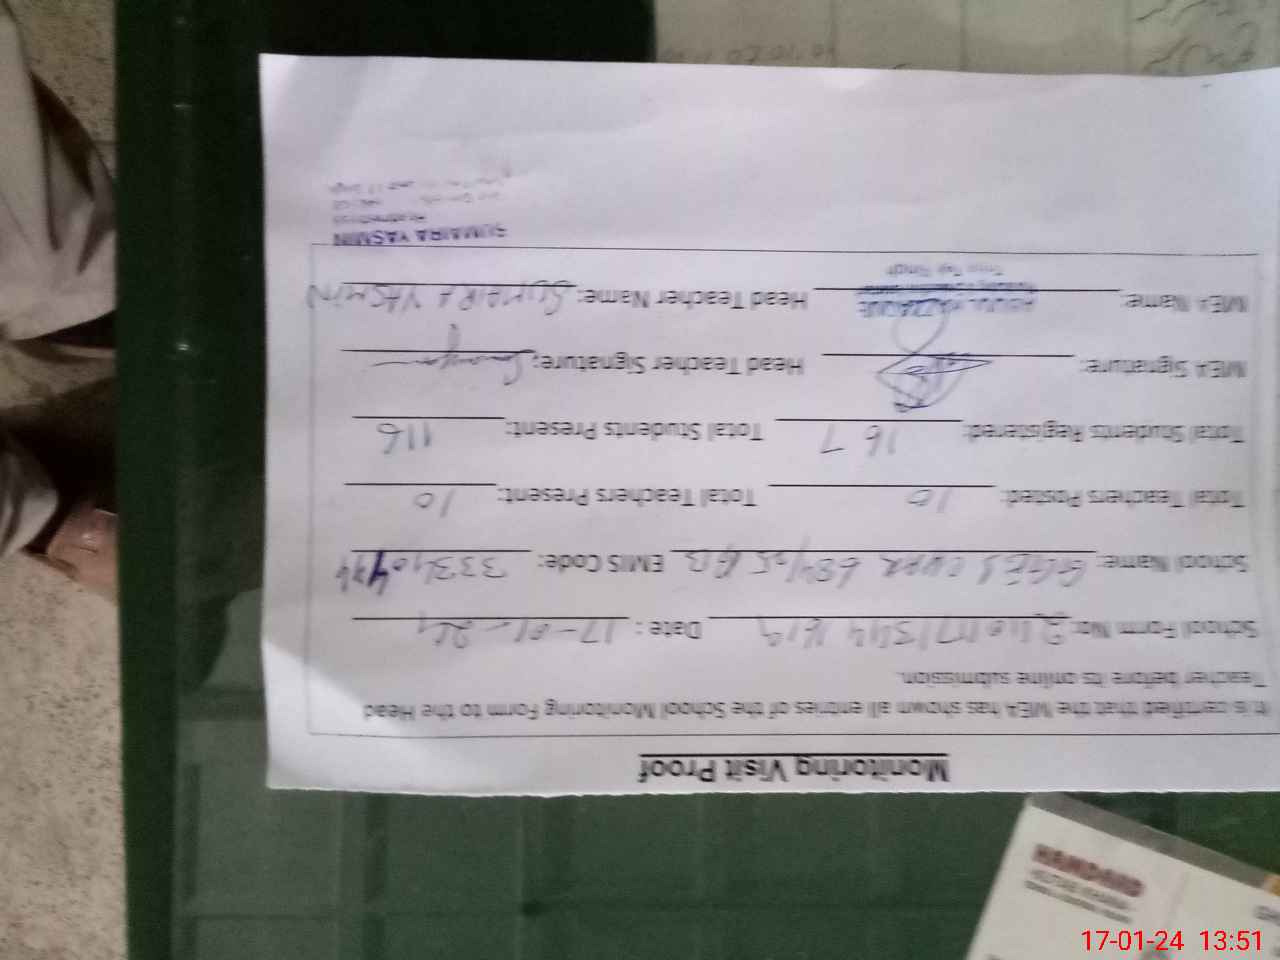 Monitoring Visit Proof
It is certified that the MEA has shown all entries of the School Monitoring Form to the Head
Teacher before its online submission.
School Form No: Date: 17-01-24
School Name: GGES CHAK 684/25 GB EMIS Code:
Total Teachers Posted: 10 Total Teachers Present: 10
Total Students Registered: 167 Total Students Present: 116
MEA Signature: Head Teacher Signature:
MEA Name: ABDUL RAZZAQUE Head Teacher Name: SUMAIRA YASMIN
SUMAIRA YASMIN
HAMDARD
17-01-24 13:51